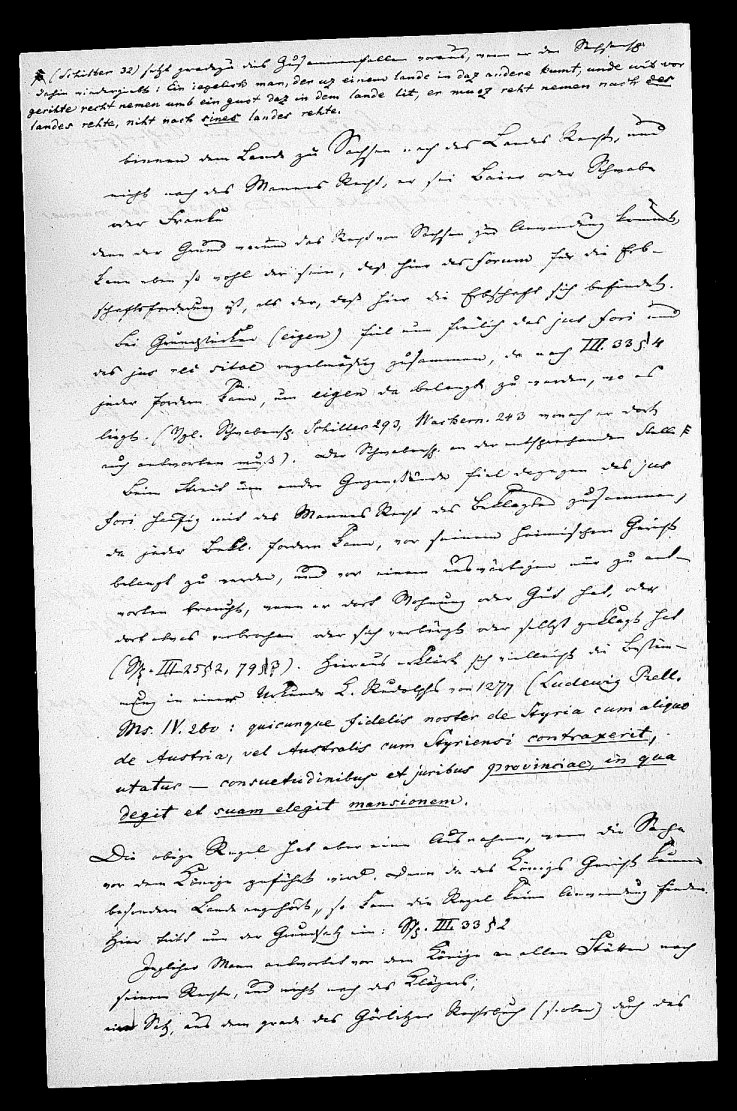 (Schilter 32) setzt geradezu dies Zusammenfallen voraus, wenn er den Sachsensp.
dahin wiedergiebt: Ein iegelich man, der uz einem lande in daz andere kumt, unde wil vor
gerihte recht nemen umb ein guot daz in dem lande lit, er muoz reht nemen nach des
landes rehte, niht nach sines landes rehte.
binnen dem Lande zu Sachsen nach des Landes Recht, und
nicht nach des Mannes Recht, er sei Baier oder Schwabe
oder Franke
denn der Grund warum das Recht von Sachsen zur Anwendung kommt,
kann eben so wohl der sein, daß hier das forum für die Erb-
schaftsforderung ist, als der, daß hier die Erbschaft sich befindet.
Bei Grundstücken (eigen) fiel nun freilich das jus fori und
das jus rei sitae regelmäßig zusammen, da nach III. 33 § 4
jeder fordern kann, um eigen da belangt zu werden, wo es
liegt. (Vgl. Schwabensp. Schilter 293, Wackern. 243 wonach er dort
auch antworten muß). Der Schwabensp. an der entsprechenden Stelle
Beim Streit um andre Gegenstände fiel dagegen das jus
fori häufig mit des Mannes Recht des Beklagten zusammen,
da jeder Bekl. fordern kann, vor seinem heimischen Gericht
belangt zu werden, und vor einem auswärtigen nur zu ant-
worten braucht, wenn er dort Wohnung oder Gut hat, oder
dort etwas verbrochen oder sich verbürgt oder selbst geklagt hat
(Sp. III 25 § 2, 79 §). Hieraus erklärt sich vielleicht die Bestim-
mung in einer Urkunde K. Rudolphs von 1277 (Ludewig Rell.
Ms. IV. 260: quicunque fidelis noster de Styria cum aliquo
de Austria, vel Australis cum Styriensi contraxerit,
utatur — consuetudinibus et juribus provinciae, in qua
degit et suam elegit mansionem.
Die obige Regel hat aber eine Ausnahme, wenn die Sache
vor dem Könige geführt wird. Denn da des Königs Gericht keinem
besondern Lande angehört, so kann die Regel keine Anwendung finden.
Hier tritt nun der Grundsatz ein: Sp. III. 33 § 2
Jeglicher Mann antwortet vor dem Könige an allen Stätten nach
seinem Rechte, und nicht nach des Klägers;
ein Satz, aus dem grade das Görlitzer Rechtsbuch (s. oben) durch das